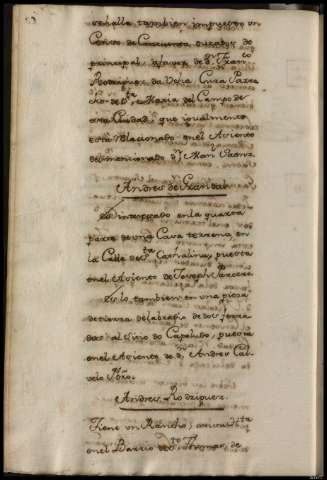 se halla tambien impuesto un
Censo de Cinquenta ducados de
principal, a favor de Dn. Franco.
Rodriguez de Vera Cura Parro
co de Sta. Maria del Campo de
esta Ciudad; que igualmente
esta relacionado en el Asiento
de
Andres de Granda
Es interesado en la quarta
parte de una Casa terrena, en
la Calle de Sta. Cathalina, puesta
en el Asiento de Joseph
Es lo tambien en una pieza
de tierra de labradio de dos ferra
dos al sitio do Capeludo, puesta
en el Asiento de Dn. Andres
Andres Rodriguez
Tiene un Rancho,
en el Barrio de Sto. Thomas, de